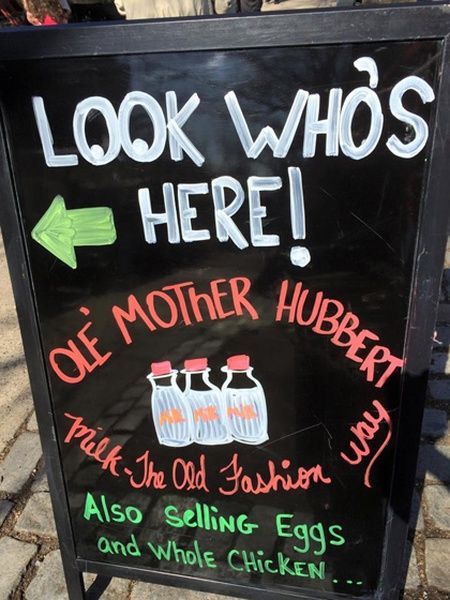 LOOK WHO'S
HERE!
OLE' MOTHER HUBBERT
MILK MILK MILK
Milk - The Old Fashion Way
Also Selling Eggs
and Whole Chicken...